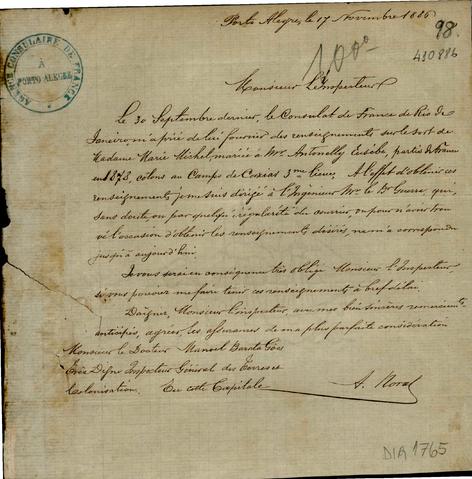 Porto Alegre, le 17 Novembre 1886
98.
100°
430886
AGENCE CONSULAIRE DE FRANCE
À
PORTO ALEGRE
Monsieur L'Inspecteur
Le 30 Septembre dernier, le Consulat de France de Rio de
Janeiro, m'a prié de lui fournir des renseignements sur le sort de
Madame Marie Michel, mariée à Mr. Antonelly Eusèbe, partis de France
en 1878, colons au Campo de Caxias 3me lieue. À l'effet d'obtenir ces
renseignements je me suis dirigé à l'Ingénieur Mr. le Dr. qui,
sans doute, ou par quelque irrégularité du courrier, ou pour n'avoir trou-
vé l'occasion d'obtenir les renseignements désirés ne m'a correspondu
jusqu'à aujourd'hui.
Je vous serai en conséquence très obligé Monsieur l'Inspecteur,
si vous pouvez me faire tenir ces renseignements à bref délai.
Daignez, Monsieur l'Inspecteur, avec mes bien sincères remerciements
anticipés, agréer les assurances de ma plus parfaite considération
Monsieur le Docteur Manoel Barata Góes
Très Digne Inspecteur Général des Terres et
Colonisation, En cette Capitale
A.
DIA 1765